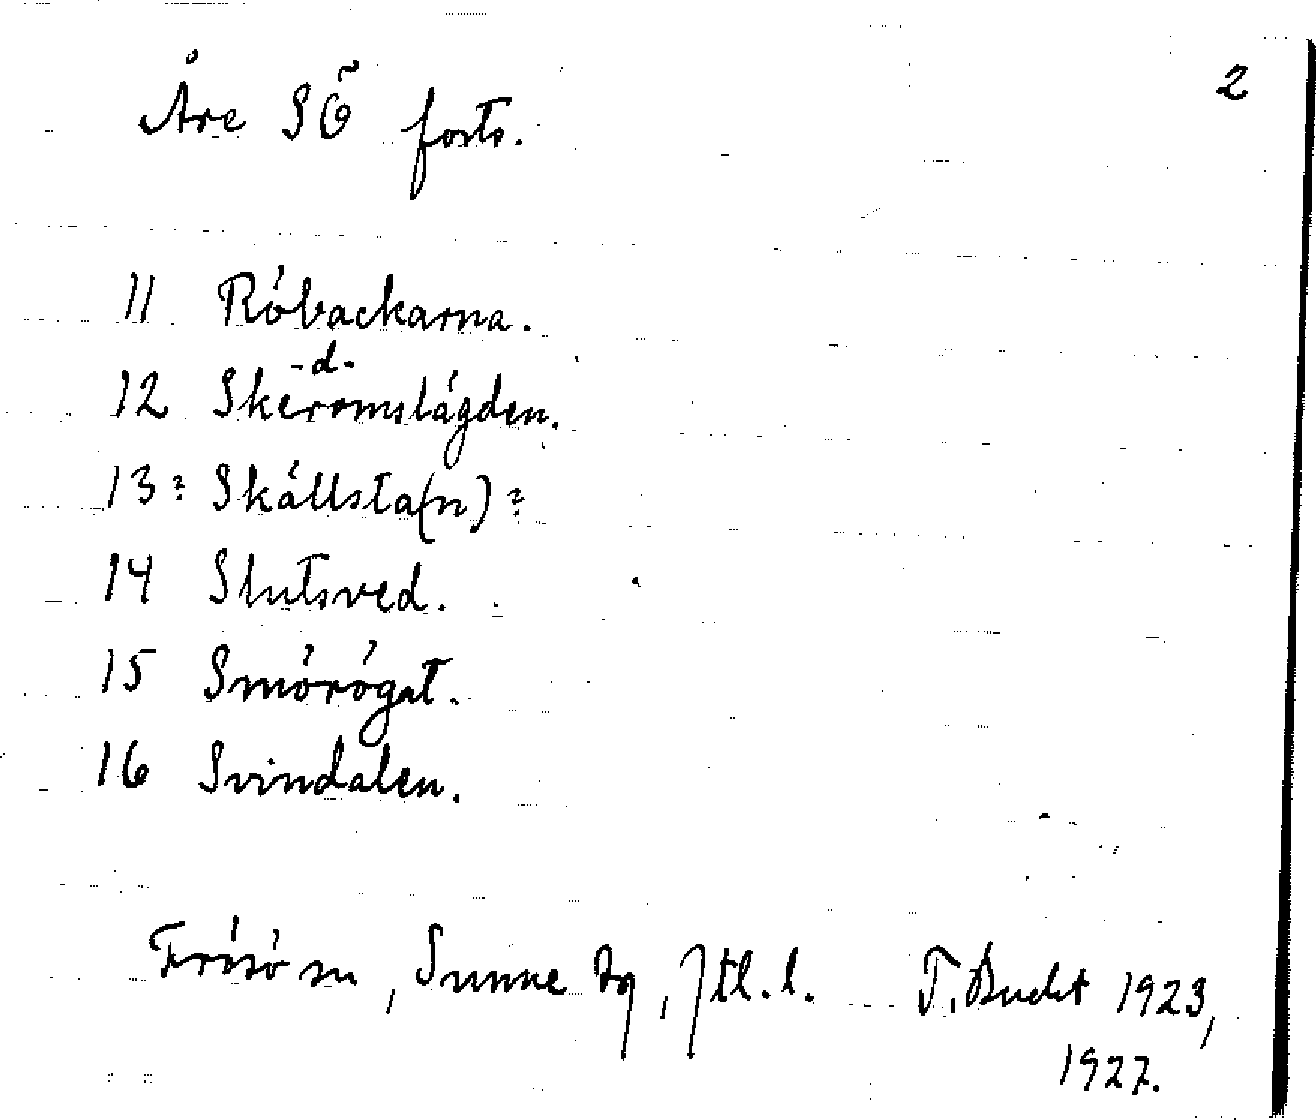 Åre SÖ forts. 2
11 Röbackarna.
-d-
12 Skeromslägden.
13 ? Skällsta(n) ?
14 Slutsved.
15 Smörögat.
16 Svindalen.
Frösö sn, Sunne tg, Jtl. l. T. Bucht 1923,
1927.